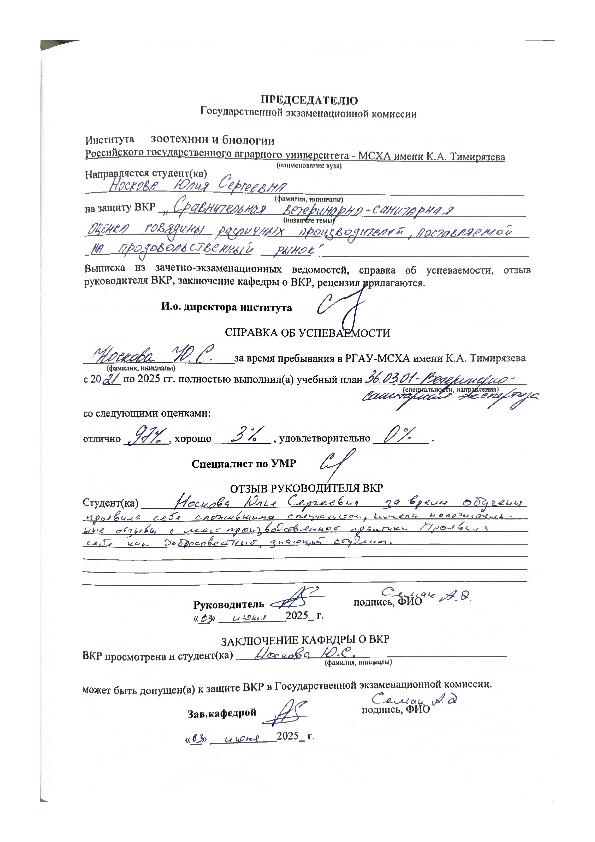 ПРЕДСЕДАТЕЛЮ
Государственной экзаменационной комиссии
Института зоотехнии и биологии
Российского государственного аграрного университета - МСХА имени К.А. Тимирязева
(наименование вуза)
Направляется студент(ка)
Носкова Юлия Сергеевна
(фамилия, инициалы)
на защиту ВКР „Сравнительная ветеринарно-санитарная
(название темы)
оценка говядины различных производителей, поставляемой
на продовольственный рынок"
Выписка из зачетно-экзаменационных ведомостей, справка об успеваемости, отзыв
руководителя ВКР, заключение кафедры о ВКР, рецензия прилагаются.
И.о. директора института
СПРАВКА ОБ УСПЕВАЕМОСТИ
Носкова Ю.С. за время пребывания в РГАУ-МСХА имени К.А. Тимирязева
(фамилия, инициалы)
с 2021 по 2025 гг. полностью выполнил(а) учебный план 36.03.01-Ветеринарно-
(специальности, направления)
санитарная экспертиза
со следующими оценками:
отлично 97%, хорошо 3%, удовлетворительно 0%.
Специалист по УМР
ОТЗЫВ РУКОВОДИТЕЛЯ ВКР
Студент(ка) Носкова Юлия Сергеевна за время обучения
проявила себя специалистом,
отзывы с мест производственной практики. Проявила
себя как добросовестный, знающий студент.
Руководитель Семак А.Э.
подпись, ФИО
«03» июня 2025_ г.
ЗАКЛЮЧЕНИЕ КАФЕДРЫ О ВКР
ВКР просмотрена и студент(ка) Носкова Ю.С.
(фамилия, инициалы)
может быть допущен(а) к защите ВКР в Государственной экзаменационной комиссии.
Семак А.Э.
Зав.кафедрой подпись, ФИО
«03» июня 2025_ г.